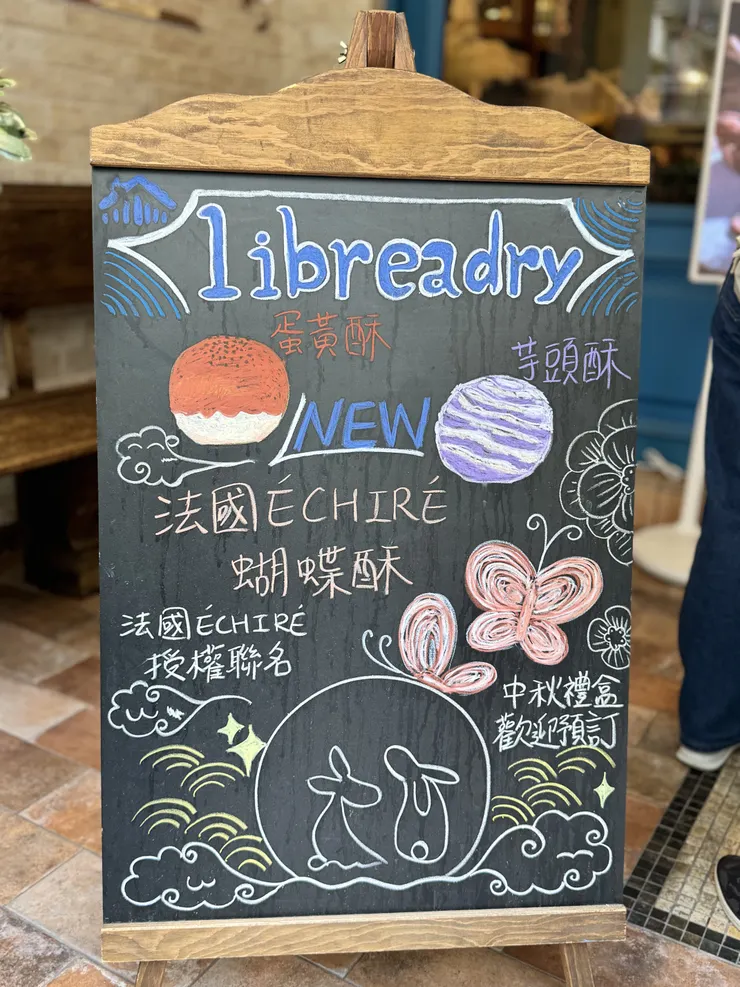 libreadry
蛋黃酥
芋頭酥
NEW
法國ÉCHIRÉ
蝴蝶酥
法國ÉCHIRÉ
授權聯名
中秋禮盒
歡迎預訂